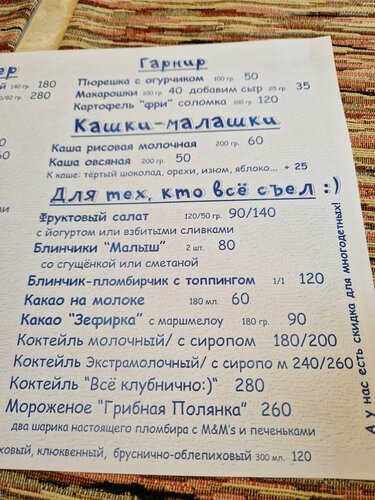 Гарнир
140 гр. 180
280
Пюрешка с огурчиком 100 гр. 50
Макарошки 100 гр. 40 добавим сыр 25 гр. 35
Картофель "фри" соломка 100 гр. 120
Кашки-малашки
Каша рисовая молочная 200 гр. 60
Каша овсяная 200 гр. 50
К каше: тёртый шоколад, орехи, изюм, яблоко... + 25
Для тех, кто всё съел :)
Фруктовый салат 120/50 гр. 90/140
с йогуртом или взбитыми сливками
Блинчики "Малыш" 2 шт. 80
со сгущёнкой или сметаной
Блинчик-пломбирчик с топпингом 1/1 120
Какао на молоке 180 мл. 60
Какао "Зефирка" с маршмелоу 180 гр. 90
Коктейль молочный/ с сиропом 180/200
Коктейль Экстрамолочный/ с сиропо м 240/260
Коктейль "Всё клубнично:)" 280
Мороженое "Грибная Полянка" 260
два шарика настоящего пломбира с M&M's и печеньками
клюквенный, бруснично-облепиховый 300 мл. 120
А у нас есть скидка для многодетных!